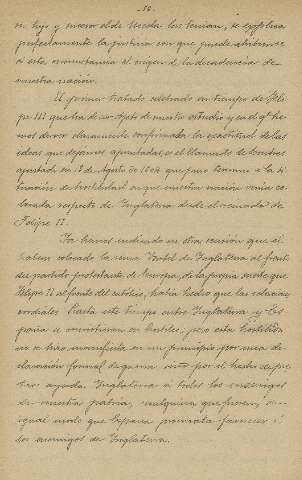 su hijo y sucesor el de Uceda los tenian, se explica
perfectamente la justicia con que puede atribuirse
á esta circunstancia el origen de la decadencia de
nuestra nación.
El primer tratado celebrado en tiempo de Feli-
pe III que ha de ser objeto de nuestro estudio y en el q̃ he-
mos de ver claramente confirmada la exactitud de las
ideas que dejamos apuntadas, es el llamado de Londres
ajustado en de Agosto de 1604 que puso termino á la si-
tuación de hostilidad en que nuestra nación venia co-
locada respecto de Inglaterra desde el reinado de
Felipe II.
Ya hemos indicado en otra ocasión que el
haberse colocado la reina Isabel de Inglaterra al frente
del partido protestante de Europa, de la propia suerte que
Felipe II al frente del católico, habia hecho que las relaciones
cordiales hasta este tiempo entre Inglaterra y Es-
paña se convirtieran en hostiles, pero esta hostilidad
no se hizo manifiesta en un principio por una de-
claración formal de guerra sino por el hecho de pres-
tar ayuda Inglaterra á todos los enemigos
de nuestra patria, cualquiera que fuesen, de
igual modo que España procuraba favorecer á
los enemigos de Inglaterra.